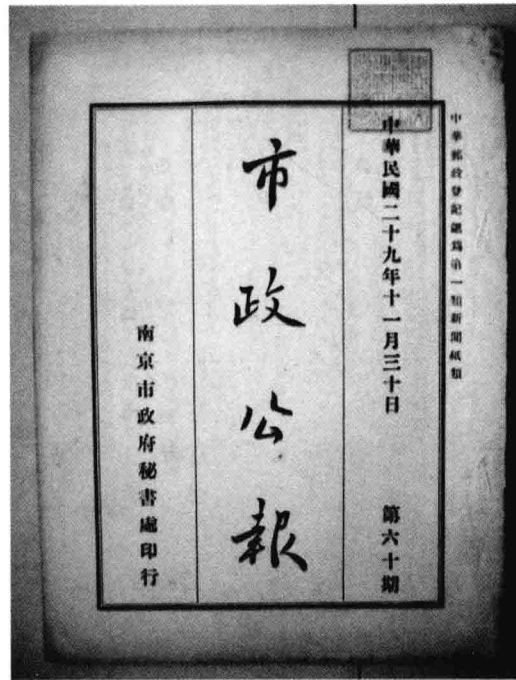 中華郵政登記認爲第一類新聞紙類
中華民國二十九年十一月三十日 第六十期
市政公報
南京市政府秘書處印行